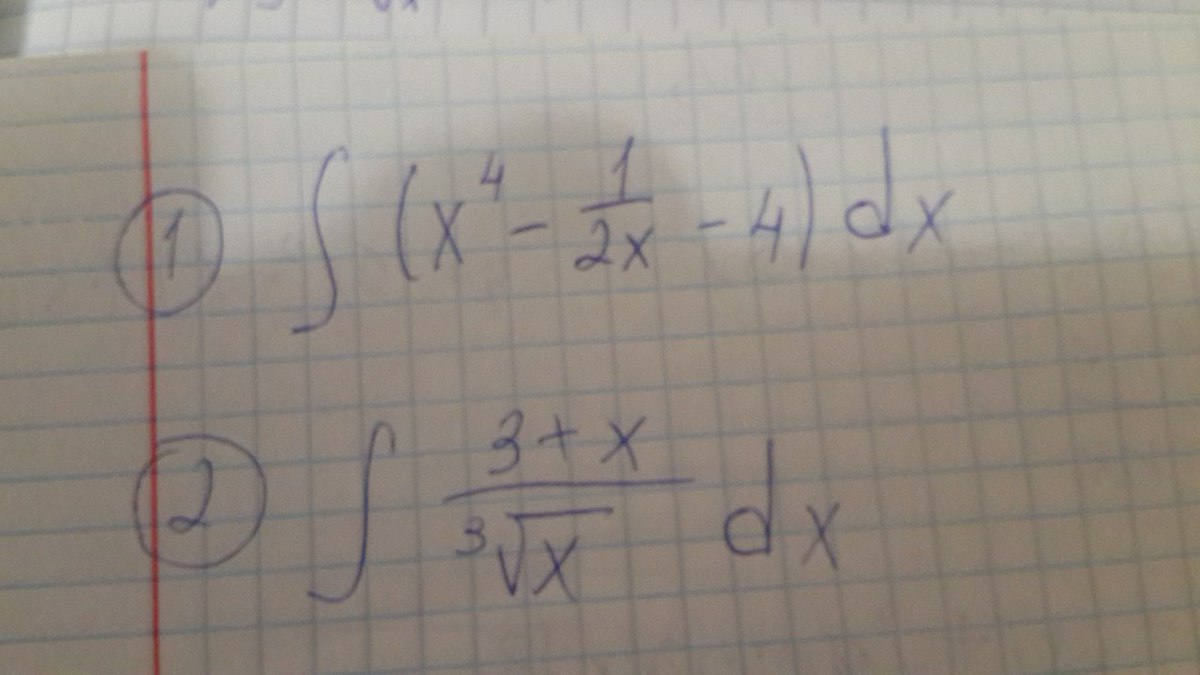 ① ∫ (x⁴ - 1/2x - 4) dx
② ∫ 3+x/³√x dx